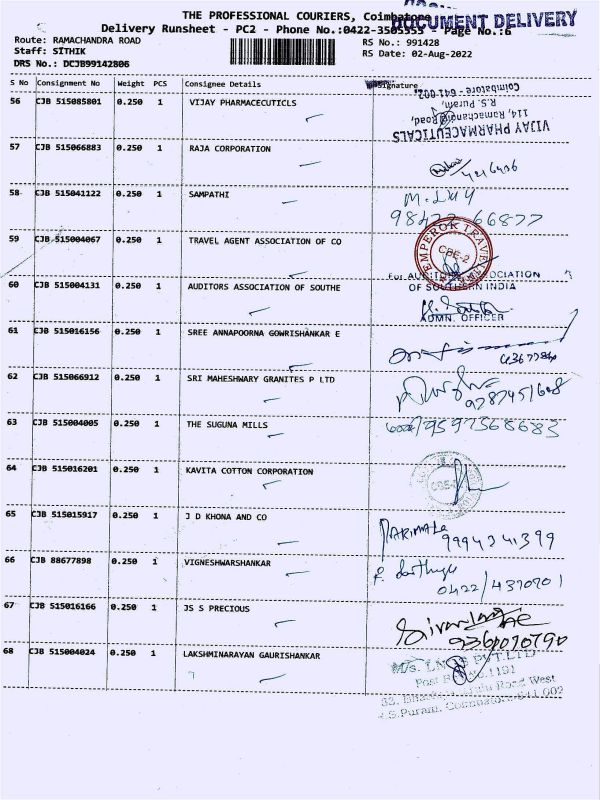 THE PROFESSIONAL COURIERS, Coimbatore
DOCUMENT DELIVERY
Delivery Runsheet - PC2 - Phone No.:0422-3505555 - Page No.:6
Route: RAMACHANDRA ROAD
RS No.: 991428
Staff: SITHIK
RS Date: 02-Aug-2022
DRS No.: DCJB99142806
S No Consignment No Weight PCS Consignee Details Signature
56 CJB 515085801 0.250 1 VIJAY PHARMACECUTICLS
VIJAY PHARMACEUTICALS
114, Ramachandra Road,
R.S. Puram,
Coimbatore - 641 002.
57 CJB 515066883 0.250 1 RAJA CORPORATION
58 CJB 515041122 0.250 1 SAMPATHI
59 CJB 515004067 0.250 1 TRAVEL AGENT ASSOCIATION OF CO
EMPEROR TRAVEL
CBE-2
60 CJB 515004131 0.250 1 AUDITORS ASSOCIATION OF SOUTHE
For AUDITORS ASSOCIATION
OF SOUTHERN INDIA
ADMN. OFFICER
61 CJB 515016156 0.250 1 SREE ANNAPOORNA GOWRISHANKAR E
62 CJB 515066912 0.250 1 SRI MAHESHWARY GRANITES P LTD
9787451608
63 CJB 515004005 0.250 1 THE SUGUNA MILLS
9597368683
64 CJB 515016201 0.250 1 KAVITA COTTON CORPORATION
65 CJB 515015917 0.250 1 J D KHONA AND CO
PARIMALA
9994341399
66 CJB 88677898 0.250 1 VIGNESHWARSHANKAR
0422/4370701
67 CJB 515016166 0.250 1 JS S PRECIOUS
9360070790
68 CJB 515004024 0.250 1 LAKSHMINARAYAN GAURISHANKAR
M/s. PVT.LTD
Post No.1191
Road West
R.S.Puram, Coimbatore-641 002